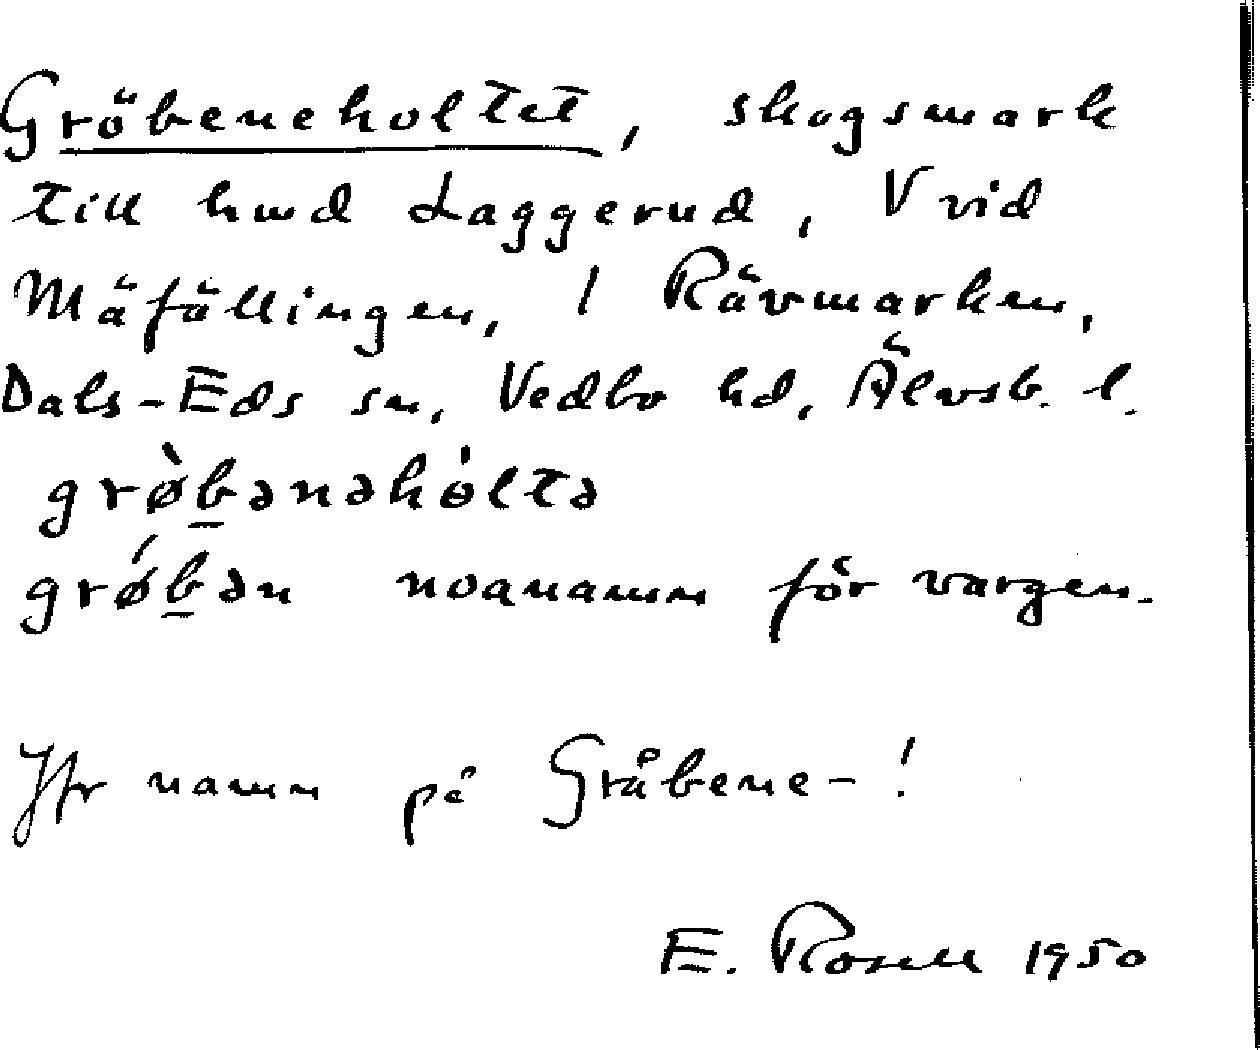 Gröbeneholtet, skogsmark
till hmd Laggerud, V vid
Mäfällingen, / Rävmarken,
Dals-Eds sn, Vedbo hd, Älvsb. l.
grø̀b̲ənəhólta
grǿb̲ən noanamn för vargen.
Jfr namn på Gråbene-!
E. Rosell 1950